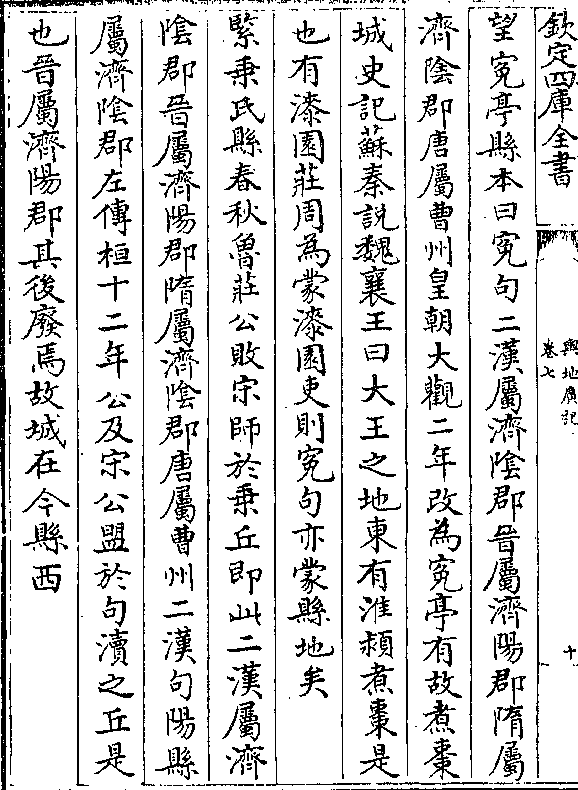 欽定四庫全書
輿地廣記
卷七
十
望寃亭縣本曰寃句二漢屬濟陰郡晉屬濟陽郡隋屬
濟陰郡唐屬曹州皇朝大觀二年改為寃亭有故煮棗
城史記蘇秦說魏襄王曰大王之地東有淮潁煮棗是
也有漆園莊周為蒙漆園吏則寃句亦蒙縣地矣
緊乗氏縣春秋魯莊公敗宋師於乗丘即此二漢屬濟
陰郡晉屬濟陽郡隋屬濟陰郡唐屬曹州二漢句陽縣
屬濟陰郡左傳桓十二年公及宋公盟於句瀆之丘是
也晉屬濟陽郡其後廢焉故城在今縣西